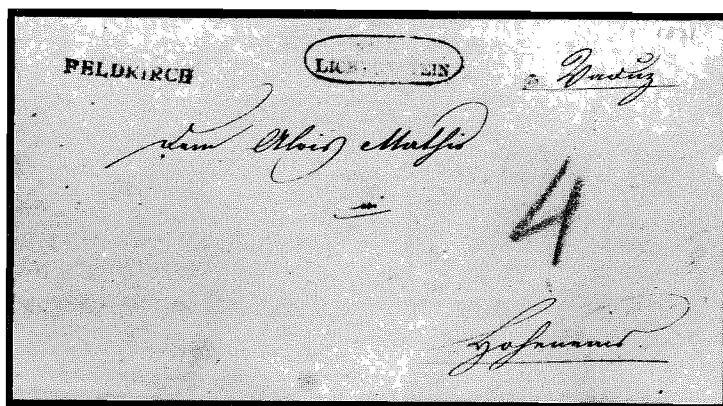 FELDKIRCH
LICHTENSTEIN
Vaduz
Dem Alois Mathis
4
Hohenems.